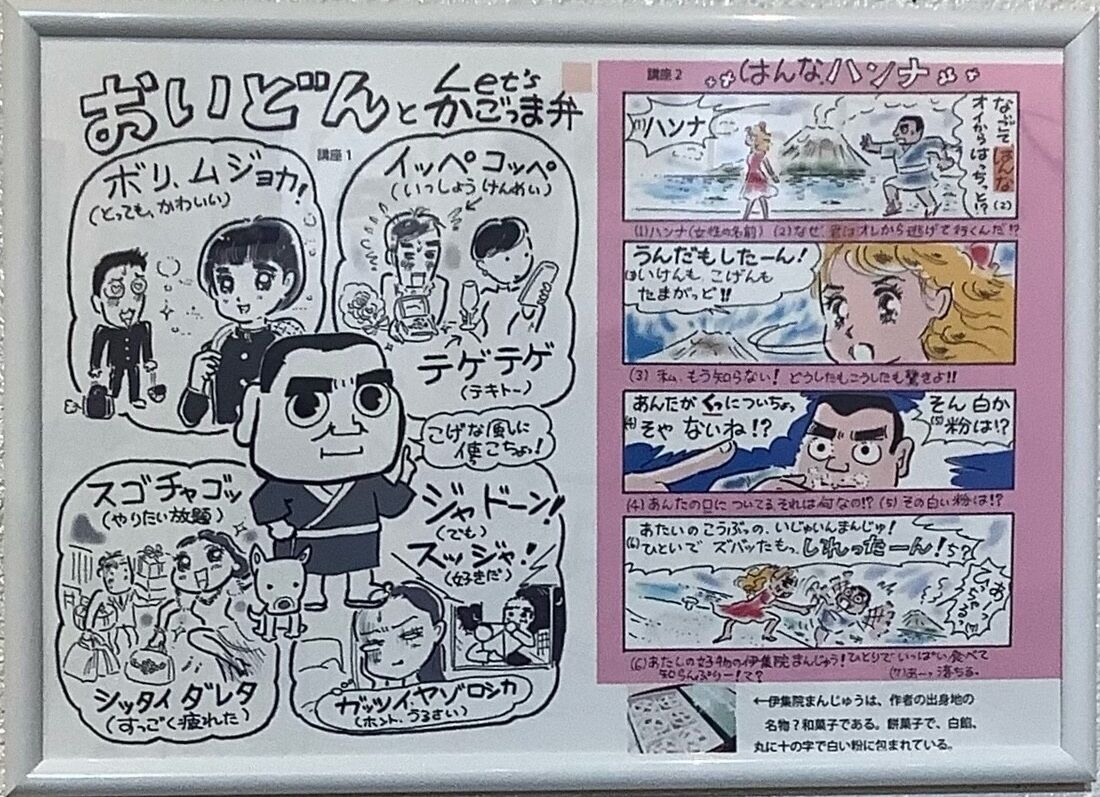 おいどんと Let's かごっま弁
講座1
ボリ、ムジョカ!
(とっても、かわいい)
イッペコッペ
(いっしょうけんめい)
テゲテゲ
(テキトー)
こげな風しに
使こちょっ!
スゴチャゴッ
(やりたい放題)
シッタイダレタ
(すっごく疲れた)
ジャドーン!
(でも)
スッジャ!
(好きだ)
ガッツイ、ヤゾロシカ
(ホント、うるさい)
講座2
はんな、ハンナ
(1)ハンナ
なごて
オイからはっちっと!?
はんな(2)
(1)ハンナ(女性の名前) (2)なぜ、君はオレから逃げて行くんだ!?
うんだもしたーん!
(3)いけんも、こげんも
たまがっど!!
(3) 私、もう知らない! どうしたもこうしたも驚きよ!!
あんたが くっについちょっ
(4)そや ないね!?
そん 白か
(5)粉は!?
(4)あんたの口についてる、それは何なの!? (5) その白い粉は!?
あたいのこうぶっの、いじゅいんまんじゅ!
(6)ひといで ズバッたもっ、しれったーん!ち?
(6)あたしの好物の伊集院まんじゅう!ひとりでいっぱい食べて
知らんぷりー!て?
(7)あーっ、落ちる。
←伊集院まんじゅうは、作者の出身地の
名物?和菓子である。餅菓子で、白餡、
丸に十の字で白い粉に包まれている。